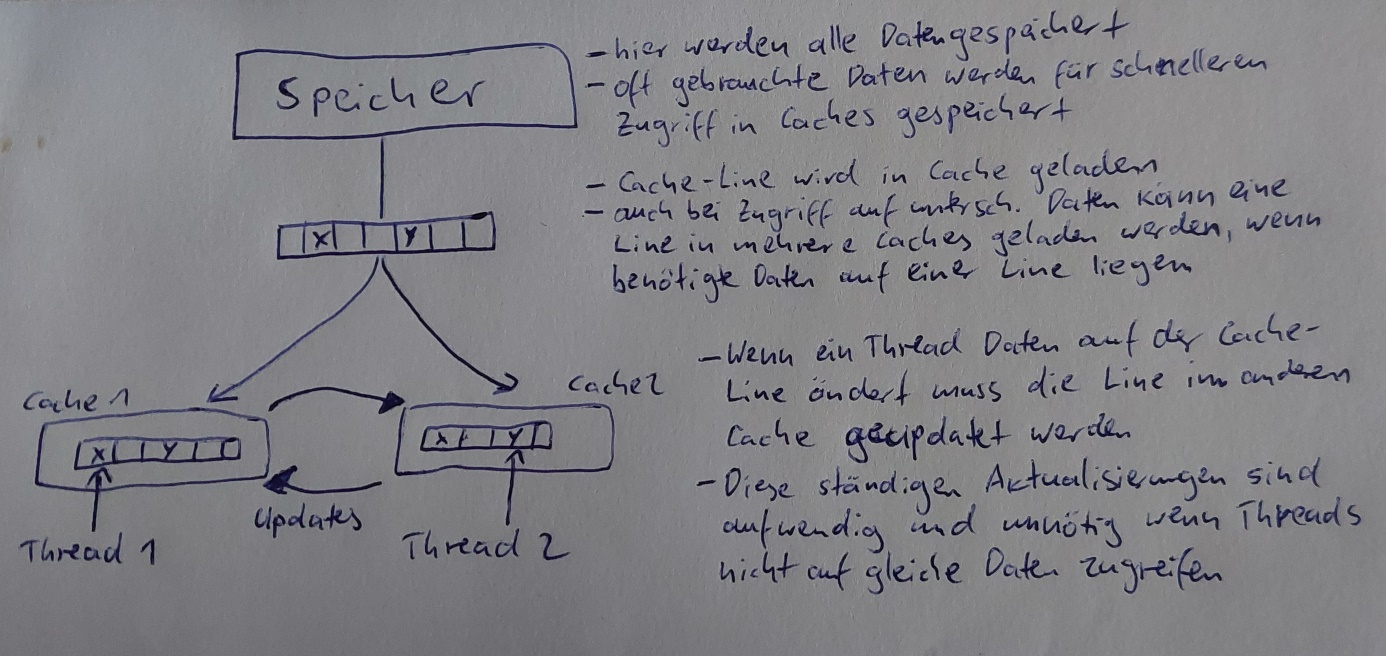 Speicher
- hier werden alle Daten gespeichert
- oft gebrauchte Daten werden für schnelleren
Zugriff in Caches gespeichert
- Cache-Line wird in Cache geladen
- auch bei Zugriff auf untersch. Daten kann eine
Line in mehrere Caches geladen werden, wenn
benötigte Daten auf einer Line liegen
X Y
Cache 1
X Y
Thread 1
Updates
Cache 2
X Y
Thread 2
- Wenn ein Thread Daten auf der Cache-
Line ändert muss die Line im anderen
Cache geupdatet werden
- Diese ständigen Aktualisierungen sind
aufwendig und unnötig wenn Threads
nicht auf gleiche Daten zugreifen